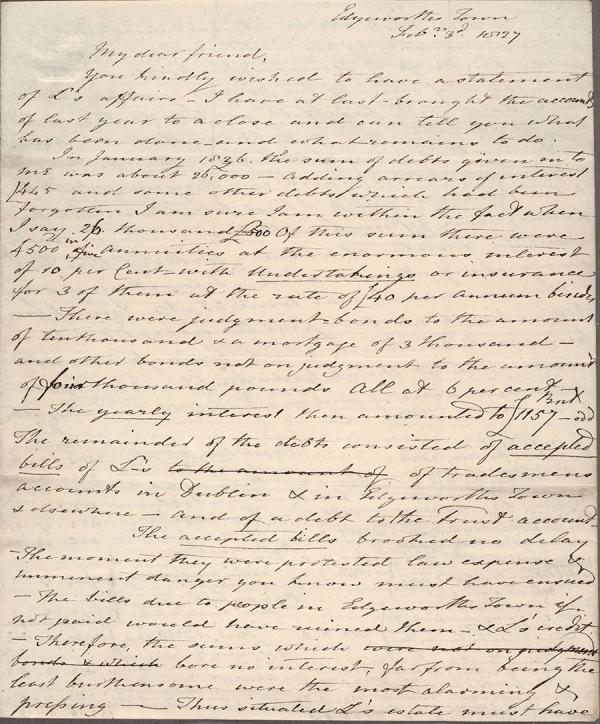 Edgeworths Town
Feb.ry 3d. 1837
My dear friend,
You kindly wished to have a statement
of L's affairs – I have at last brought the accounts
of last year to a close and can tell you what
has been done and what remains to do.
In January 1836. the sum of debts given in to
me was about 26,000 – adding arrears of interest
£445 and some other debts which had been
forgotten I am sure I am within the fact when
I say 26 thousand £500 Of this sum there were
4500 in five annuities at the enormous interest
of 10 per Cent – with Undertakings or insurance
for 3 of them at the rate of £40 per annum besides
— There were judgment-bonds to the amount
of ten thousand & a mortgage of 3 thousand –
and other bonds not on judgment to the amount
of four thousand pounds All at 6 per cent
— The yearly interest then amounted to £1157 – odd
The remainder of the debts consisted of accepted
bills of L's to the amount of of tradesmens
accounts in Dublin & in Edgeworths Town
& elsewhere – and of a debt to the Trust account
The accepted bills brooked no delay
– The moment they were protested law expense &
imminent danger you know must have ensued
– The bills due to people in Edgeworths Town if
not paid would have ruined them – & L's credit
– Therefore, the sums which were not on judgment
bonds & which bore no interest, far from being the
least burthensome were the most alarming &
pressing — Thus situated L's estate must have